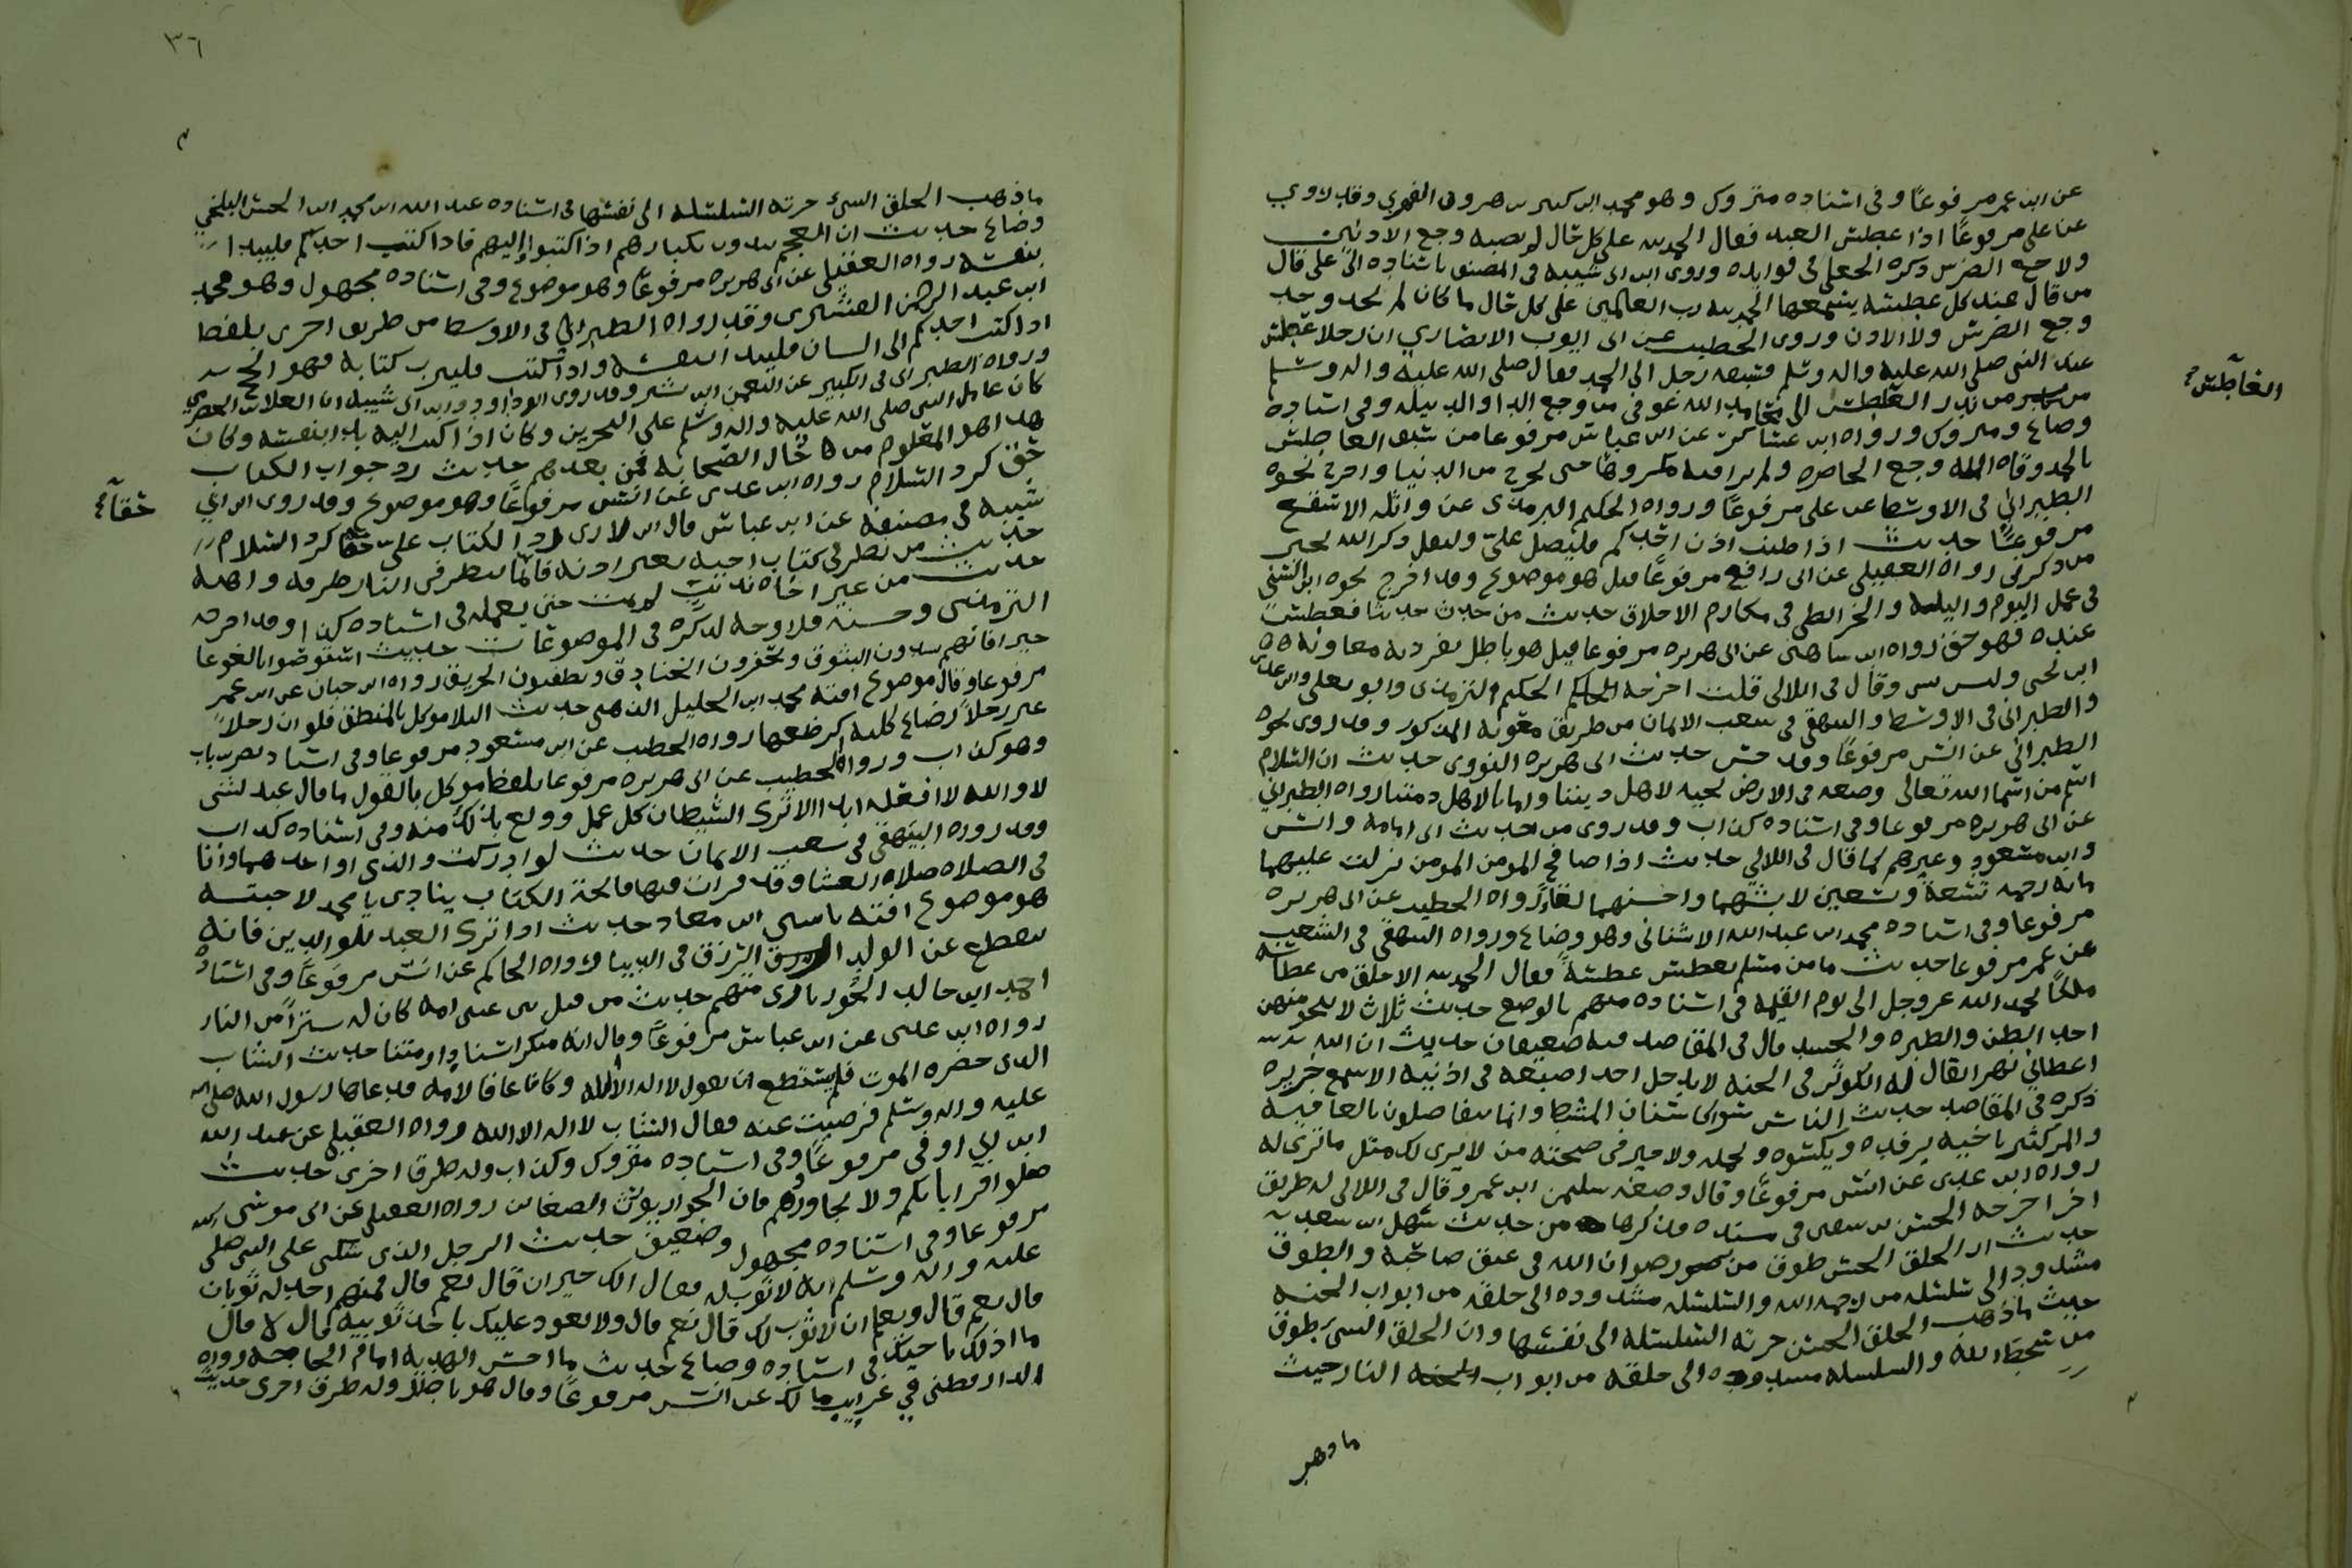 عن ابن عمر مرفوعًا وفى اسناده متروك وهو محمد ابن كثير بن هرون الفهري وقد روي
عن على مرفوعًا اذا عطس العبد فقال الحمد لله على كل حال لم يصبه وجع الاذنين
ولا وجع الضرس ذكره الخلعي فى فوايده وروى ابن ابى شيبه فى المصنف باسناده الى على قال
من قال عند كل عطسه يسمعها الحمد لله رب العالمين على كل حال ما كان لم يجد وجد
وجع الضرس ولا الاذن وروى الخطيب عن ابى ايوب الانصاري ان رجلا عطس
عند النبى صلى الله عليه واله وسلم فسبقه رجل الى الحمد فقال صلى الله عليه واله وسلم
من بدر العاطس الى محامد الله عوفى من وجع الدا والدبيله وفى اسناده
وضاع ومتروك ورواه ابن عساكر عن ابن عباس مرفوعا من سبق العاطس
بالحمد وقاه الله وجع الخاصره ولم ير فيه مكروها حتى يخرج من الدنيا واخرج نحوه
الطبراني فى الاوسط عن على مرفوعًا ورواه الحكيم الترمذى عن واثله الاسقع
مرفوعًا حديث اذا طنت اذن احدكم فليصل علىّ وليقل ذكر الله بخير
من ذكرنى رواه العقيلى عن ابى رافع مرفوعًا قيل هو موضوع وقد اخرج نحوه ابن السنى
فى عمل اليوم والليله والخرائطى فى مكارم الاخلاق حديث من حدث حديثا فعطس
عنده فهو حق رواه ابن شاهين عن ابى هريره مرفوعا قيل هو باطل تفرد به معاويه
ابن يحيى وليس بشى وقال فى اللالى قلت اخرجه الحكيم الترمذى وابو يعلى وابن عدى
والطبرانى فى الاوسط والبيهقى فى شعب الايمان من طريق معويه المذكور وقد روى نحوه
الطبراني عن انس مرفوعًا وقد حسن حديث ابى هريره النووى حديث ان السلام
اسم من اسما الله تعالى وضعه فى الارض تحيه لاهل ديننا وامانا لاهل ذمتنا رواه الطبراني
عن ابى هريره مرفوعا وفى اسناده كذاب وقد روى من حديث ابى امامه وانس
وابن مسعود وغيرهم كما قال فى اللالي حديث اذا صافح المومن المومن نزلت عليهما
مايه رحمه تسعة وتسعين لابشهما واحسنهما لقاءً رواه الخطيب عن ابى هريره
مرفوعا وفى اسناده محمد ابن عبدالله الاشنانى وهو وضاع ورواه البيهقي فى الشعب
عن عمر مرفوعا حديث ما من مسلم يعطس عطسةً فقال الحمد لله الا خلق من عطاسه
ملكًا يحمد الله عز وجل الى يوم القيمه فى اسناده متهم بالوضع حديث ثلاث لا ينجو منهن
احد الظن والطيره والحسد قال فى المقاصد فيه ضعيفان حديث ان الله
اعطاني نهرا يقال له الكوثر فى الجنه لا يدخل احد اصبعه فى اذنيه الا سمع خريره
ذكره في المقاصد حديث الناس سوا كاسنان المشط وانما يتفاضلون بالعافيه
والمر كثير باخيه يرفده ويكسوه ويحمله ولا خير فى صحبته من لا يرى لك مثل ما ترى له
رواه ابن عدى عن انس مرفوعًا وقال وضعه سليمن ابن عمر وقال فى اللالى له طريق
اخر اخرجه الحسن بن سفين فى مسنده فذكرها من حديث سهل ابن سعد
حديث ان الخلق الحسن طوق من رضوان الله فى عنق صاحبه والطوق
مشدود الى سلسله من رحمه الله والسلسله مشدوده الى حلقه من ابواب الجنه
حيث ما ذهب الخلق الحسن جرته السلسله الى نفسها وان الخلق السىء طوق
من سخط الله والسلسله مشدوده الى حلقه من ابواب النار حيث
ما ذهب
العاطس صح
٣٦
ما ذهب الخلق السىء جرته السلسله الى نفسها فى اسناده عبد الله ابن محمد ابن الحسن البلخي
وضاع حديث ان العجم يبدون بكبارهم اذا كتبوا اليهم فاذا كتب احدكم فليبدا
بنفسه رواه العقيلى عن ابى هريره مرفوعًا وهو موضوع وفى اسناده مجهول وهو محمد
ابن عبد الرحمن القشيرى وقد رواه الطبراني فى الاوسط من طريق اخرى بلفظ
اذا كتب احدكم الى انسان فليبدا بنفسه واذا كتب فليترب كتابه فهو انجح
ورواه الطبرانى فى الكبير عن النعمن ابن بشير وقد روى ابو داود وابن ابى شيبه ان العلا الحضرمي
كان عامل النبى صلى الله عليه واله وسلم على البحرين وكان اذا كتب اليه بدا بنفسه وكان
هذا هو المعلوم من حال الصحابه فمن بعدهم حديث رد جواب الكتاب
حق كرد السلام رواه ابن عدى عن انس مرفوعًا وهو موضوع وقد روى ابن ابي
شيبه فى مصنفه عن ابن عباس قال انى لارى رد الكتاب علىّ حقا كرد السلام
حديث من نظر فى كتاب اخيه بغير اذنه فانما ينظر فى النار طرفه واهله
حديث من عير اخاه بذنب لم يمت حتى يعمله فى اسناده كذاب وقد اخرجه
الترمذى وحسنه فلا وجه لذكره فى الموضوعات حديث استوصوا بالغوغا
خيرا فانهم يسدون البثوق ويحفرون الخنادق ويطفئون الحريق رواه ابن حبان عن ابن عمر
مرفوعا وقال موضوع افته محمد ابن الخليل الذهلى حديث البلا موكل بالمنطق فلو ان رجلاً
عير رجلاً رضاع كلبه لرضعها رواه الخطيب عن ابن مسعود مرفوعا وفى اسناده نصر بن باب
وهو كذاب ورواه الخطيب عن ابى هريره مرفوعا بلفظ موكل بالقول ما قال عبد لشى
لا والله لا افعله ابدا الا ترك الشيطان كل عمل وولع بذلك منه وفى اسناده كذاب
وقد رواه البيهقي فى شعب الايمان حديث لو ادركت والدى او احدهما وانا
فى الصلاه صلاه العشا وقد قرات فيها فاتحة الكتاب ينادى يا محمد لاجبته
هو موضوع افته ياسين ابن معاذ حديث اذا ترك العبد للوالدين فانه
ينقطع عن الولد الرزق فى الدنيا رواه الحاكم عن انس مرفوعًا وفى اسناده
احمد ابن خالد الجويبارى متهم حديث من قبل بين عينى امه كان له سترًا من النار
رواه ابن عدى عن ابن عباس مرفوعًا وقال انه منكر اسنادا ومتنا حديث الشاب
الذى حضره الموت فلم يستطع ان يقول لا اله الا الله وكان عاقا لامه فدعاها رسول الله صلى الله
عليه واله وسلم فرضيت عنه فقال الشاب لا اله الا الله رواه العقيلى عن عبد الله
ابن ابي اوفى مرفوعًا وفى اسناده متروك وكذاب وله طرق اخرى حديث
صلوا قراباتكم ولا تجاوروهم فان الجوار يورث الضغائن رواه العقيلى عن ابى موسى
مرفوعا وفى اسناده مجهول وضعيف حديث الرجل الذى شكى على النبى صلى الله
عليه واله وسلم انه لا ثوب له فقال الك جيران قال نعم قال فمنهم احد له ثوبان
قال نعم قال ويعلم ان لا ثوب لك قال نعم قال ولا يعود عليك باحد ثوبيه قال لا قال
ما ذلك باخيك فى اسناده وضاع حديث ما احسن الهديه امام الحاجه رواه
الدارقطنى في غرايب مالك عن انس مرفوعًا وقال هو باطل وله طرق اخرى حديث
حقا صح